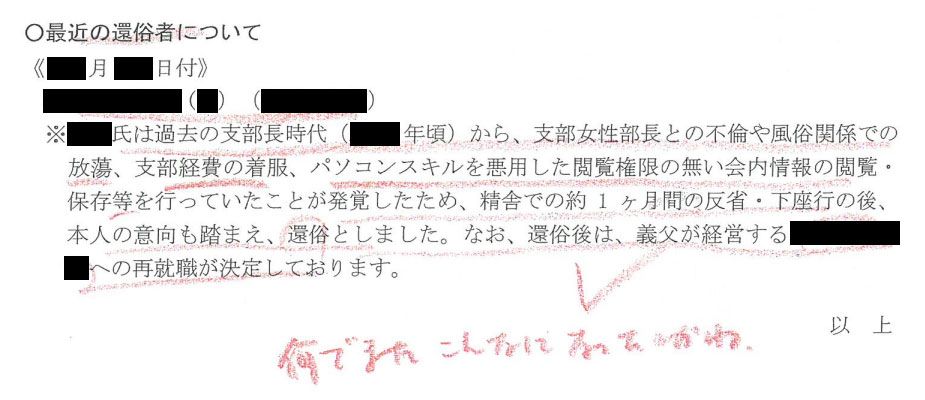 〇最近の還俗者について
《月 日付》
（ ）（ ）
※ 氏は過去の支部長時代（ 年頃）から、支部女性部長との不倫や風俗関係での
放蕩、支部経費の着服、パソコンスキルを悪用した閲覧権限の無い会内情報の閲覧・
保存等を行っていたことが発覚したため、精舎での約１ヶ月間の反省・下座行の後、
本人の意向も踏まえ、還俗としました。なお、還俗後は、義父が経営する
への再就職が決定しております。
以 上
何でまたこんなになったのかね、